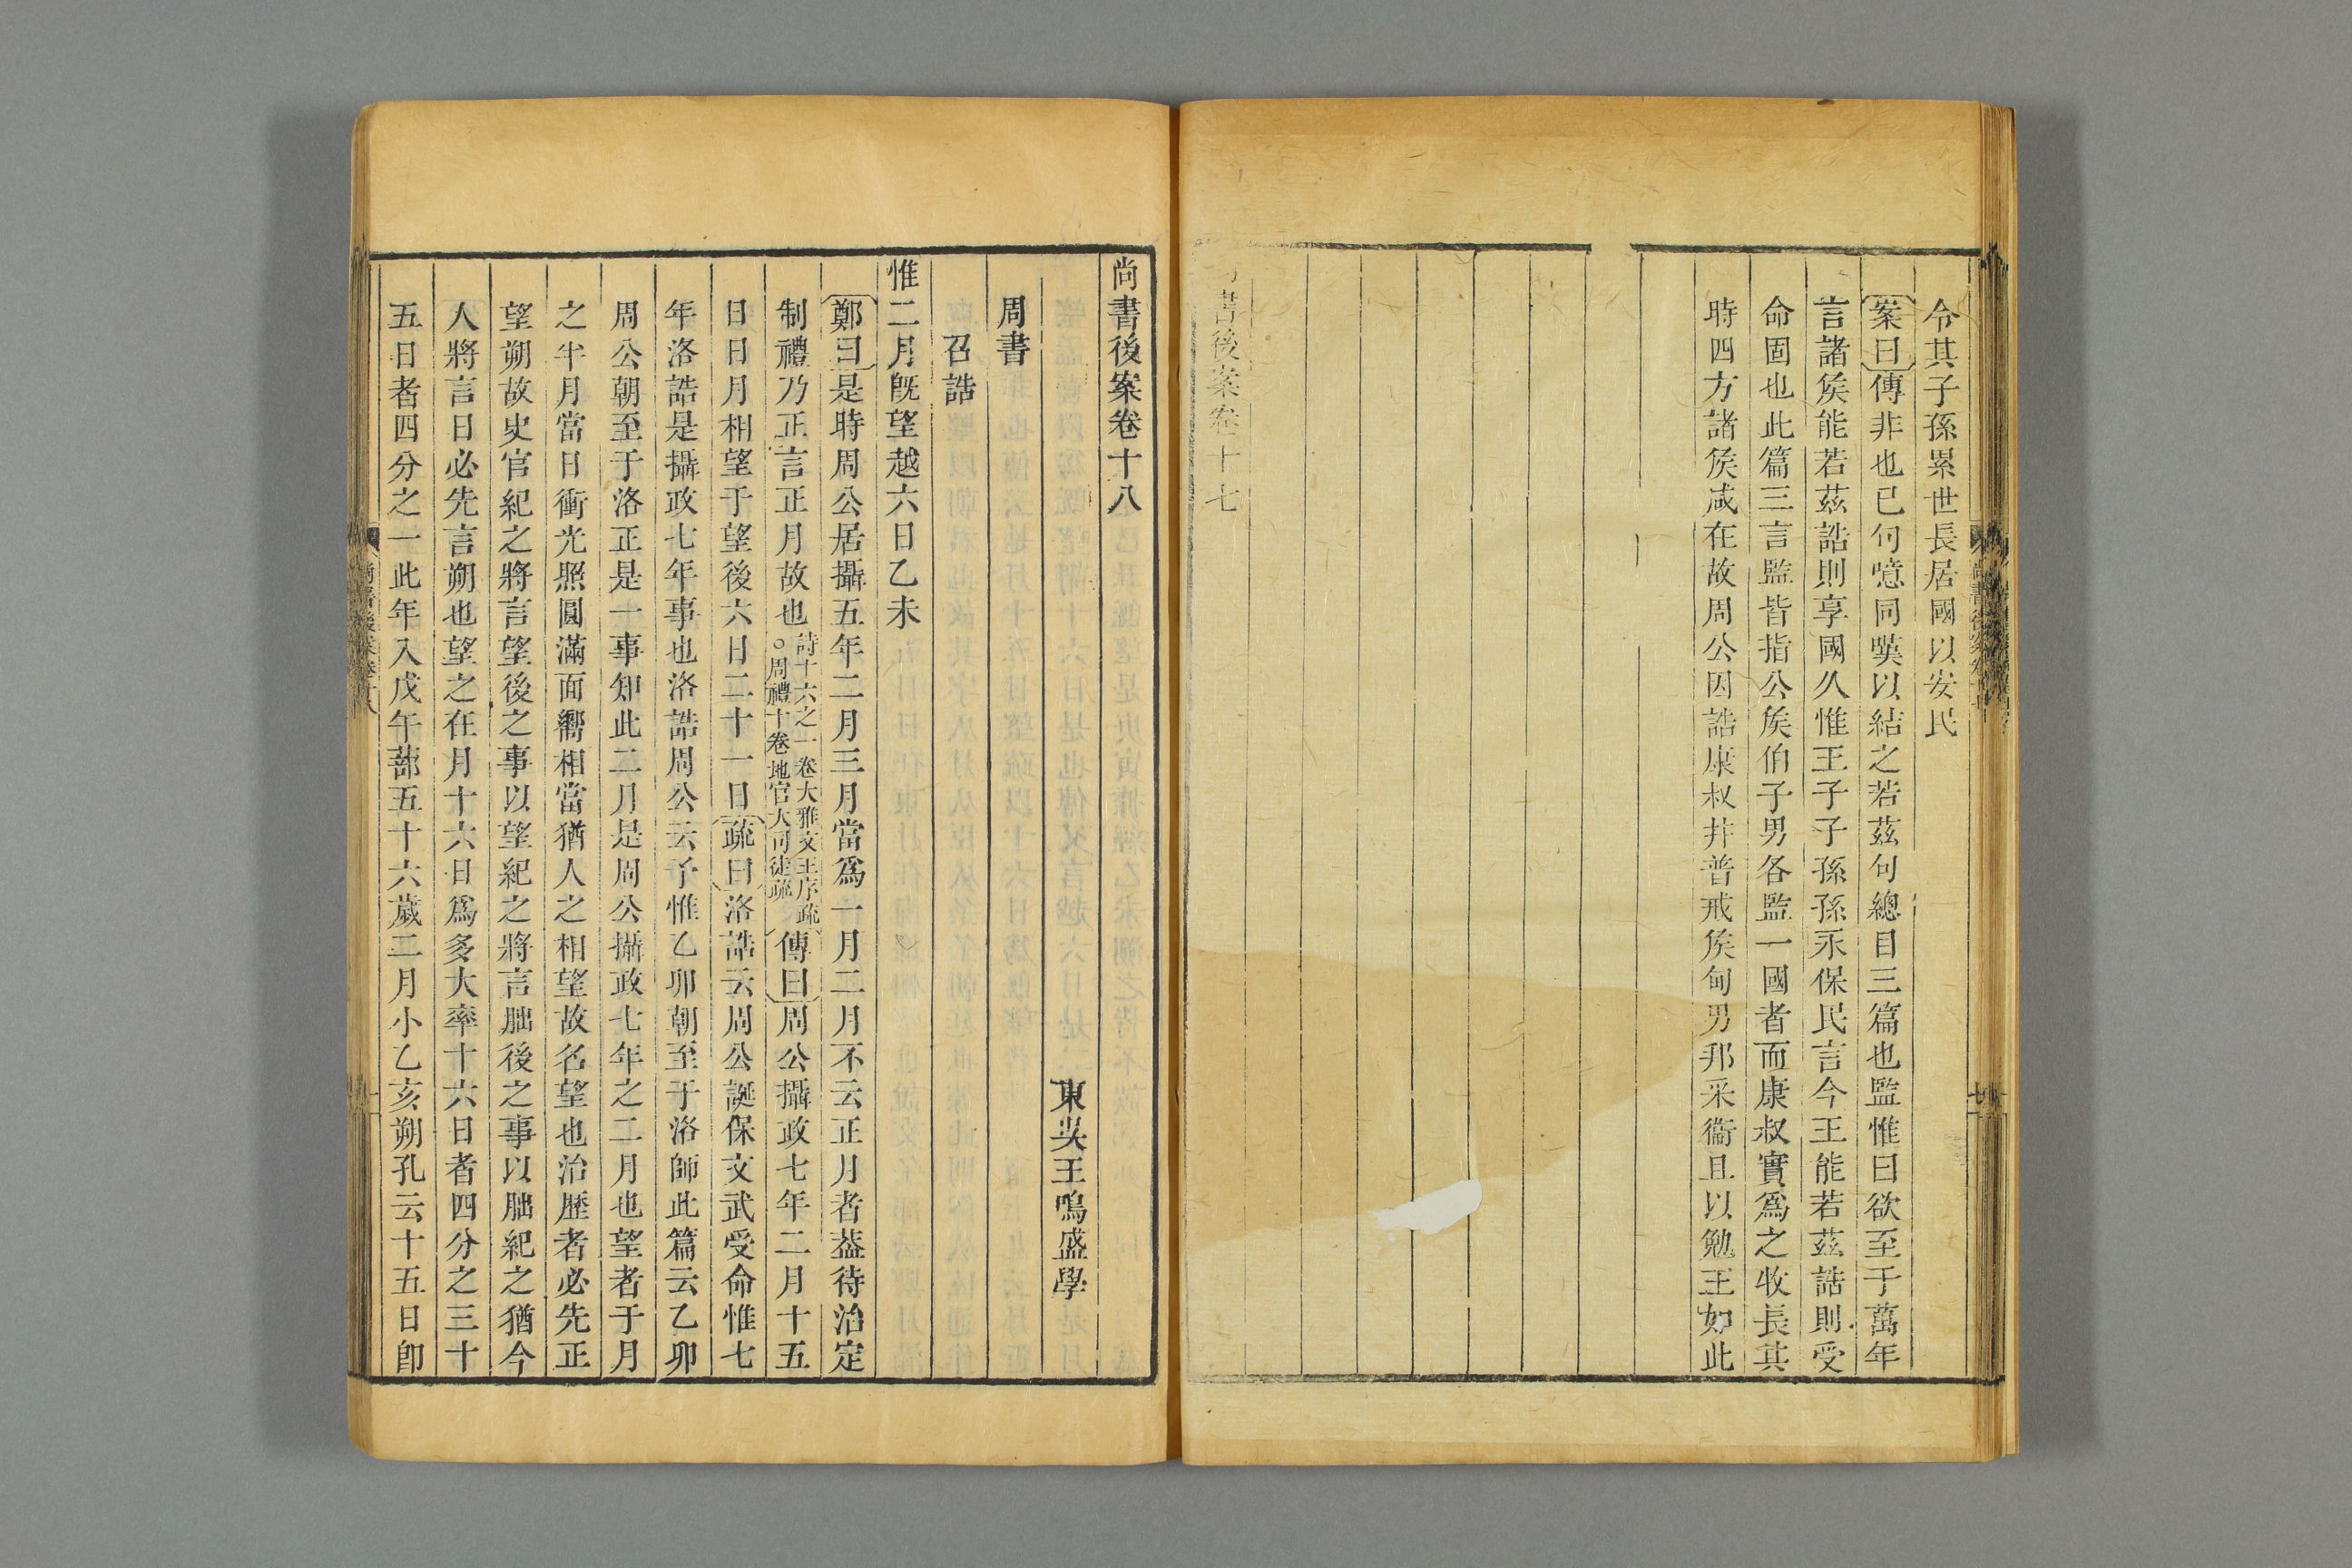 令其子孫累世長居國以安民
案曰傳非也已句噫同嘆以結之若茲句總目三篇也監惟曰欲至于萬年
言諸矦能若茲誥則享國久惟王子子孫孫永保民言今王能若茲誥則受
命固也此篇三言監皆指公矦伯子男各監一國者而康叔實爲之牧長其
時四方諸矦咸在故周公因誥康叔幷普戒矦甸男邦采衞且以勉王如此
尚書後案卷十七
尚書後案卷十八
東吳王鳴盛學
周書
召誥
惟二月旣望越六日乙未
鄭曰是時周公居攝五年二月三月當爲一月二月不云正月者葢待治定
制禮乃正言正月故也詩十六之一卷大雅文王序疏○周禮十卷地官大司徒疏傳曰周公攝政七年二月十五
日日月相望于望後六日二十一日疏曰洛誥云周公誕保文武受命惟七
年洛誥是攝政七年事也洛誥周公云予惟乙卯朝至于洛師此篇云乙卯
周公朝至于洛正是一事知此二月是周公攝政七年之二月也望者于月
之半月當日衝光照圓滿面嚮相當猶人之相望故名望也治歷者必先正
望朔故史官紀之將言望望後之事以望紀之將言朏後之事以朏紀之猶今
人將言日必先言朔也望之在月十六日爲多大率十六日者四分之三十
五日者四分之一此年入戊午蔀五十六歲二月小乙亥朔孔云十五日卽